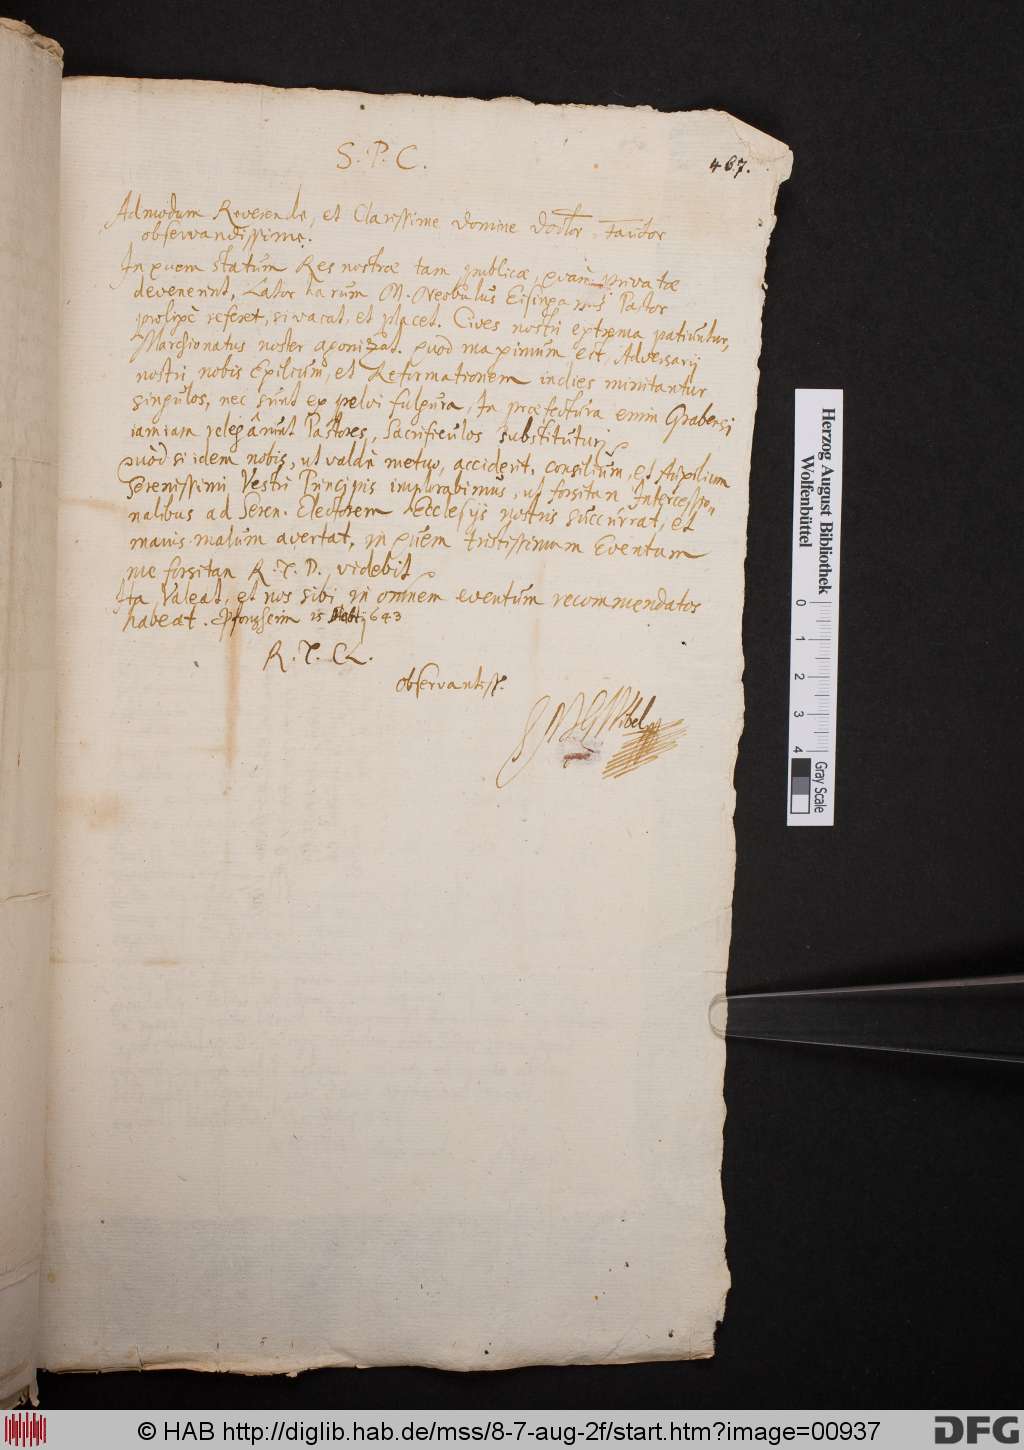 S. P. C.
467.
Admodum Reverende, et Clarissime Domine Doctor, Fautor
observandissime.
In quem statum Res nostræ tam publicæ, quàm privatæ
devenerint, Lator harum M. Neobulus Eisinganus Pastor
prolixè referet, si vacat, et placet. Cives nostri extrema patiuntur,
Marchionatus noster agonizat. quod maximum est, Adversarij
nostri nobis Exilium, et Reformationem indies minitantur
singulos, nec sunt ex pelvi fulgura, In præfectura enim Grabensi
iamiam relegârunt Pastores, Sacrificulos substituturi
quòd si idem nobis, ut valdè metuo, acciderit, consilium, et Auxilium
Serenissimi Vestri Principis implorabimus, ut forsitan Intercessio-
nalibus ad Seren. Electorem Ecclesijs nostris succurrat, et
maius malum avertat, in quem tristissimum Eventum
me forsitan R. T. D. videbit
Ita Valeat, et nos sibi in omnem eventum recommendatos
habeat. Pforzheim 15 1643
R. T. Cl.
observantiss.
Herzog August Bibliothek
Wolfenbüttel
0 1 2 3 4
Gray Scale
© HAB http://diglib.hab.de/mss/8-7-aug-2f/start.htm?image=00937
DFG